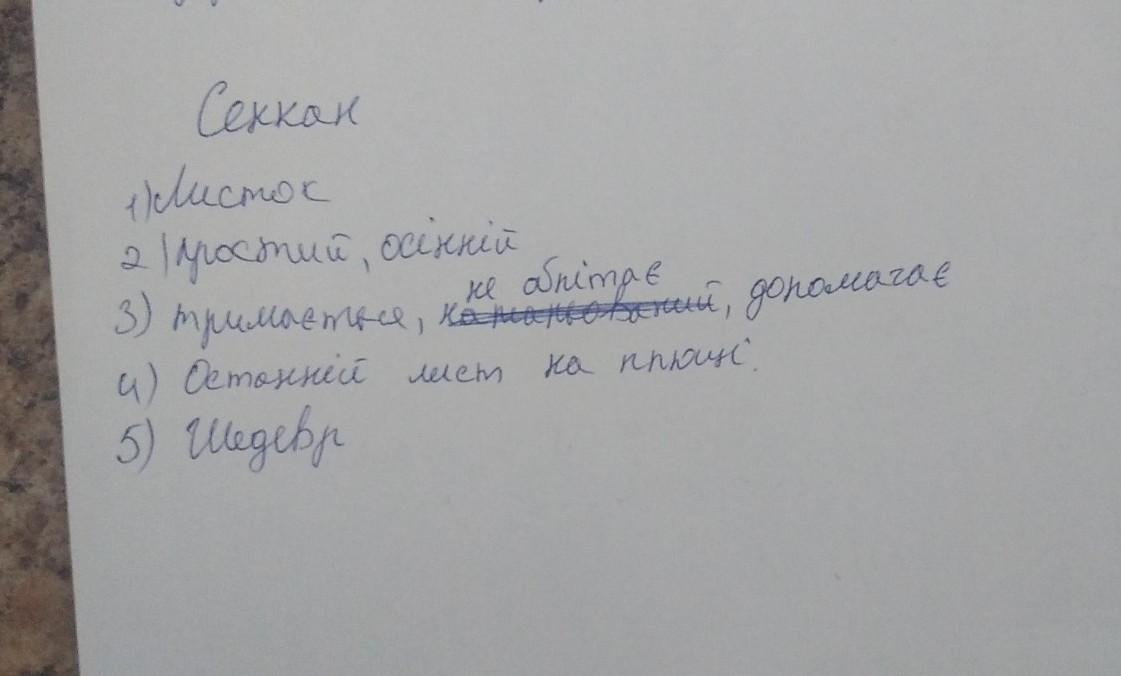 Сенкан
1) Листок
2) простий, осінній
3) тримається, не облітає, допомагає
4) Останній лист на плющі.
5) Шедевр